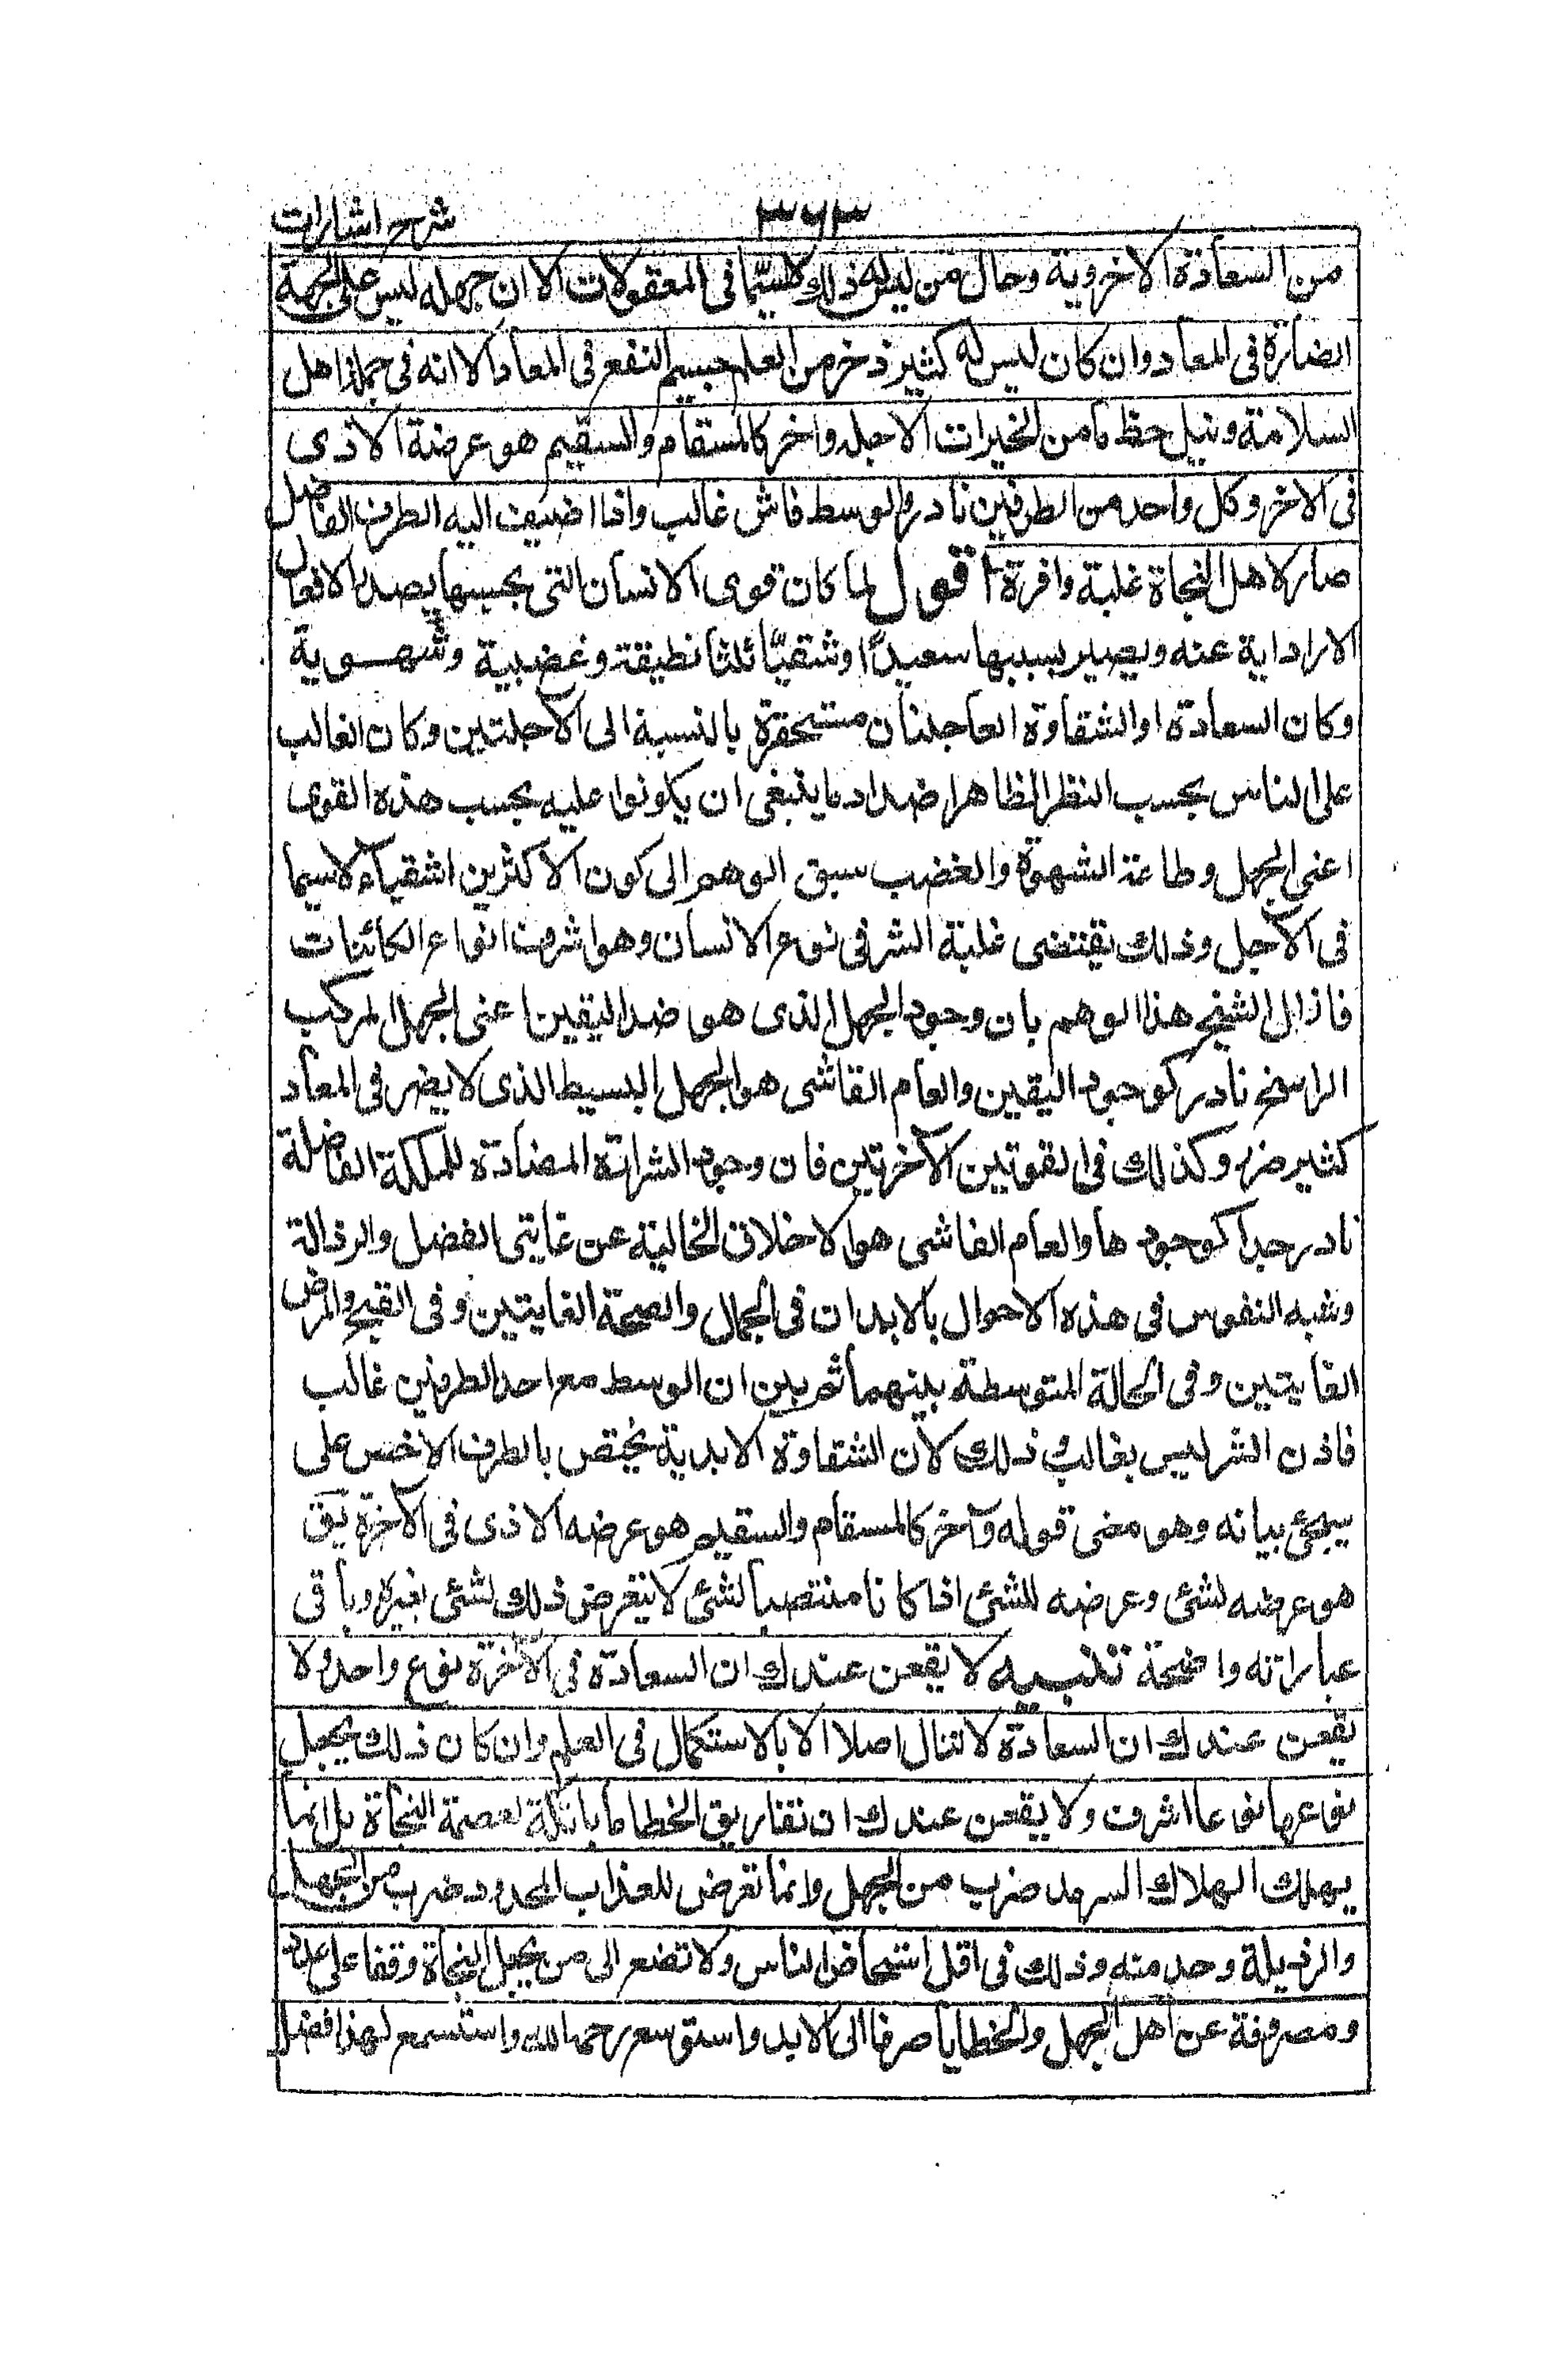 شرح اشارات ٣٦٣
من السعادة الاخروية وحال من ليس له ذلك لا سيّما فى المعقولات الا ان جهله ليس على الجهة
الضارة فى المعاد وان كان ليس له كثير ذخر من العلم جسيم النفع فى المعاد الا انه فى جملة اهل
السلامة ونيل حظ ما من الخيرات الاجلة واخر كالمسقام والسقيم هو عرضة الاذى
فى الاخر وكل واحد من الطرفين نادر والوسط فاش غالب واذا اضيف اليه الطرف الفاضل
صار لاهل النجاة غلبة وافرة اقول لما كان قوى الانسان التى بحسبها يصدر الافعال
الارادية عنه ويصير بسببها سعيدًا وشقيّا ثلثا نطيقة وغضبية وشهوية
وكان السعادة او الشقاوة العاجلتان مستحقرة بالنسبة الى الآجلتين وكان الغالب
على الناس بحسب النظر الظاهر اضداد ما ينبغى ان يكونوا عليه بحسب هذه القوى
اعنى الجهل وطاعة الشهوة والغضب سبق الوهم الى كون الاكثرين اشقياء لا سيما
فى الآجل وذلك يقتضى غلبة الشر فى نوع الانسان وهو اشرف انواع الكائنات
فازال الشيخ هذا الوهم بان وجود الجهل الذى هو ضد اليقين اعنى الجهل المركب
الراسخ نادر كوجود اليقين والعام الفاشى هو الجهل البسيط الذى لا يضر فى المعاد
كثير ضرر وكذلك فى القوتين الآخرتين فان وجود الشرارة المضادة للملكة الفاضلة
نادر جدا كوجودها والعام الفاشى هو الاخلاق الخالية عن غايتى الفضل والرذالة
وشبه النفوس فى هذه الاحوال بالابدان فى الجمال والصحة الغايتين وفى القبح والمرض
الغايتين وفى الحالة المتوسطة بينهما ثم بين ان الوسط مع احد الطرفين غالب
فاذن الشر ليس بغالب وذلك لان الشقاوة الابدية يختص بالطرف الاخس على
سيجئ بيانه وهو معنى قوله وآخر كالمسقام والسقيم هو عرضه الاذى فى الآخرة يق
هو عرضه لشئ وعرضه للشئ اذا كانا منتصبا لشئ لا يتعرض ذلك لشئ بغيره وباقى
عباراته واضحة تنبيه لا يقعن عندك ان السعادة فى الآخرة نوع واحد ولا
يقعن عندك ان السعادة لا تنال اصلا الا بالاستكمال فى العلم وان كان ذلك يجعل
نوعها نوعا اشرف ولا يقعن عندك ان تفاريق الخطايا باتكة لعصمة النجاة بل انما
يهلك الهلاك السرمد ضرب من الجهل وانما تعرض للعذاب المحدود ضرب من الجهل
والرذيلة وحد منه وذلك فى اقل اشخاص الناس ولا تضع الى من يجعل النجاة وقفا على عدد
ومصروفة عن اهل الجهل والخطايا صرفا الى الابد واستوسع رحمة الله واستسمع لهذا فضل